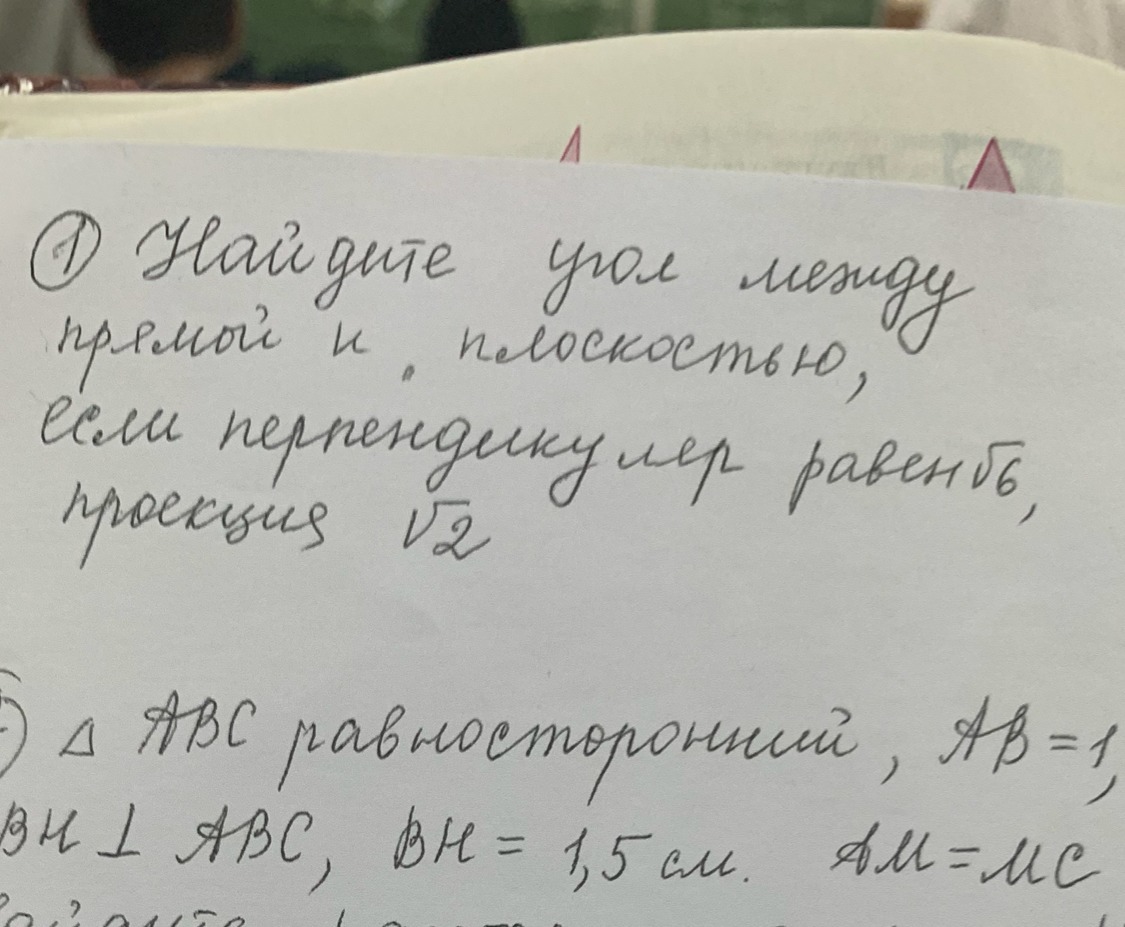 ① Найдите угол между
прямой и плоскостью,
если перпендикуляр равен √6,
проекция √2
△ ABC равносторонний, AB = 1,
BH ⊥ ABC, BH = 1,5 см. AM = MC